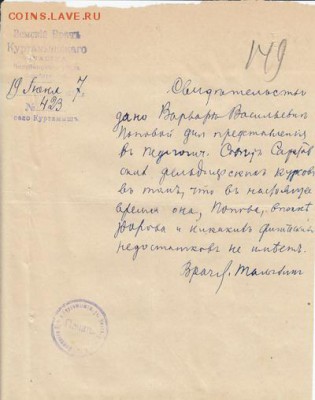 COINS.LAVE.RU
149
Земскiй Врачъ
Куртамышскаго
19 Iюня 7
№ 423
село Куртамышъ
Свидѣтельство
дано Варварѣ Васильевнѣ
Поповой для представленiя
въ педагогич. Совѣтъ
фельдшерскихъ курсовъ
въ томъ, что въ настоящее
время она, Попова, вполнѣ
здорова и никакихъ физическ
недостатковъ не имѣетъ.
Врачъ